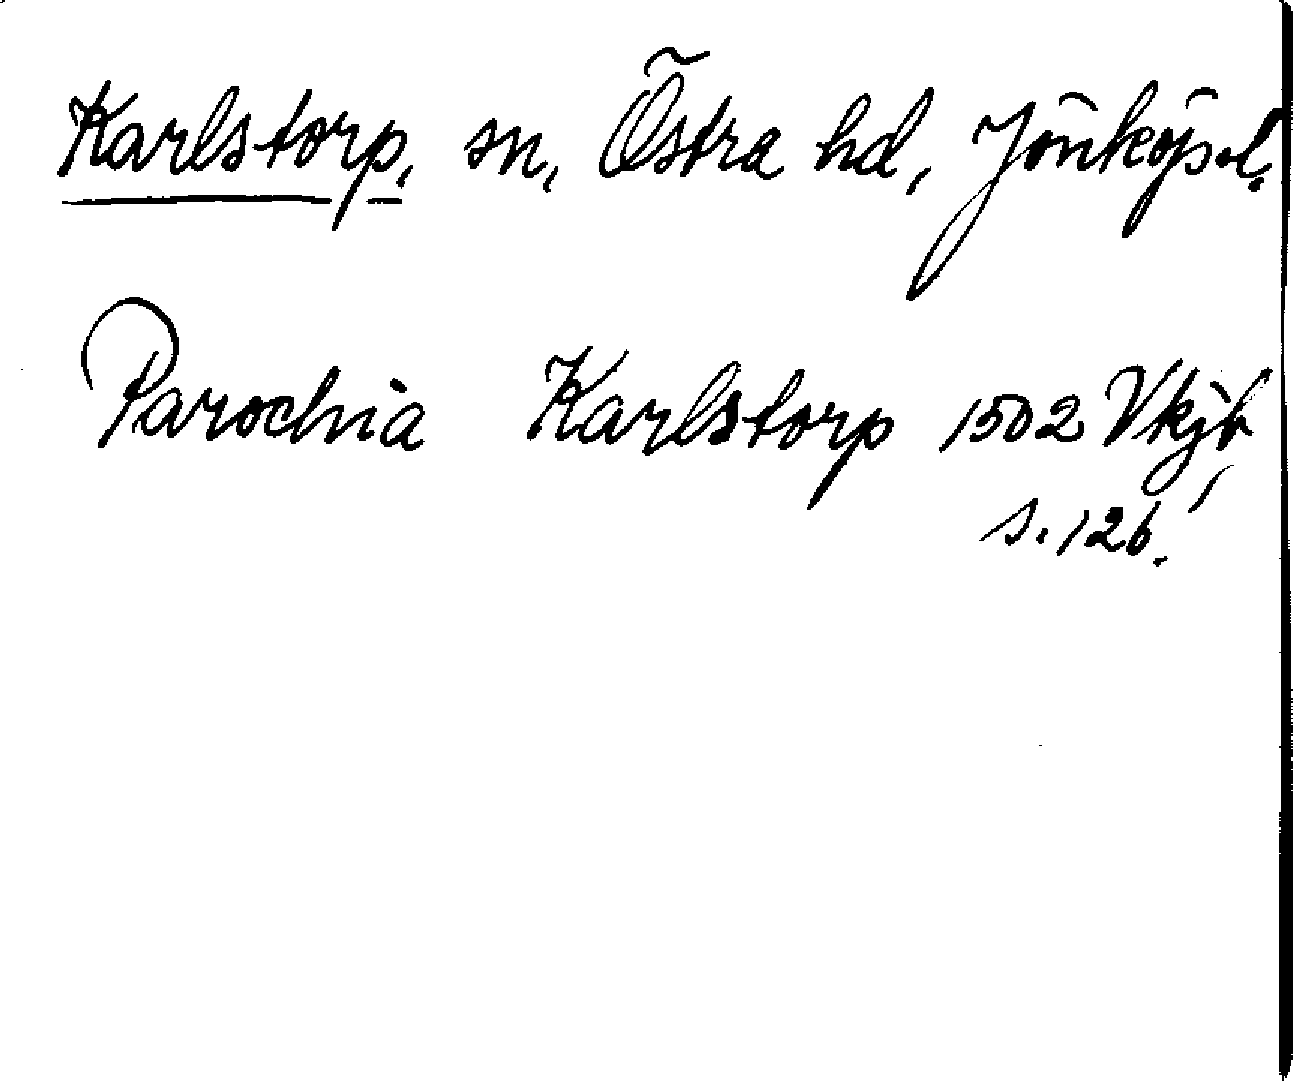 Karlstorp, sn, Östra hd, Jönköp.l.
Parochia Karlstorp 1502 Vkjb,
s. 126.